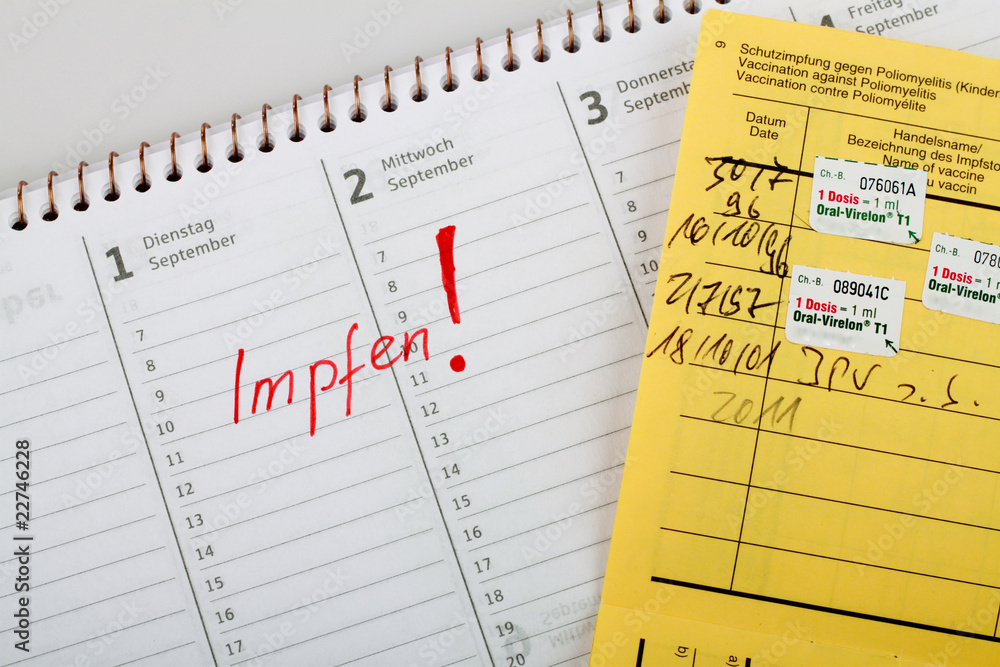 1
Dienstag
September
7
8
9
10
11
12
13
14
15
16
17
2
Mittwoch
September
7
8
9
10
11
12
13
14
15
16
17
18
19
20
Impfen!
3
Donnerstag
September
7
8
9
10
4
Freitag
September
9
Schutzimpfung gegen Poliomyelitis (Kinder
Vaccination against Poliomyelitis
Vaccination contre Poliomyélite
Datum
Date
Handelsname/
Bezeichnung des Impfsto
Name of vaccine
du vaccin
96
16/10/96
2/7/97
18/10/01 IPV
2011
Ch.-B. 076061A
1 Dosis = 1 ml
Oral-Virelon® T1
Ch.-B. 078
1 Dosis = 1 m
Oral-Virelon®
Ch.-B. 089041C
1 Dosis = 1 ml
Oral-Virelon® T1
a)
b)
Adobe Stock | #22746228